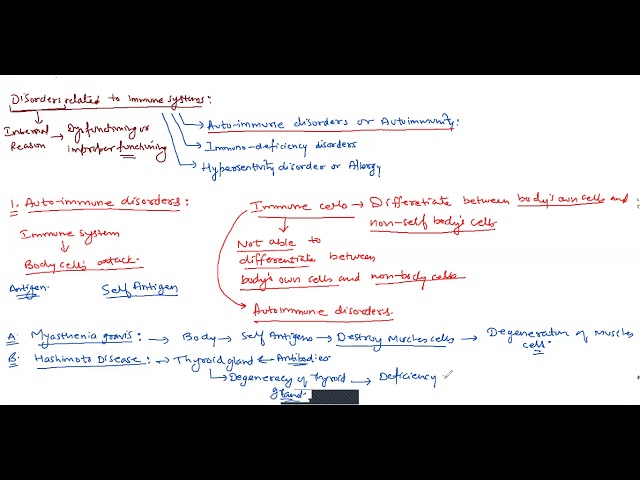 Disorders related to immune systems:
Internal Reason → Dysfunctining or improper functining
→ Auto-immune disorders or Autoimmunity:
→ Immuno-deficiency disorders
→ Hypersentivity disorder or Allergy
1. Auto-immune disorders:
Immune system
↓
Body cells attack.
Antigen. Self Antigen
Immune cells → Differetiate between body's own cells and
non-self body's cells
Not able to
differetiate between
body's own cells and non-body cells
Autoimmune disorders.
A. Myasthenia gravis: → Body → Self Antigens → Destroy Muscles cells → Degeneration of Muscles
cell.
B. Hashimoto Disease: → Thyroid gland ← Antibodies
→ Degeneracy of thyroid → Deficiency
gland.